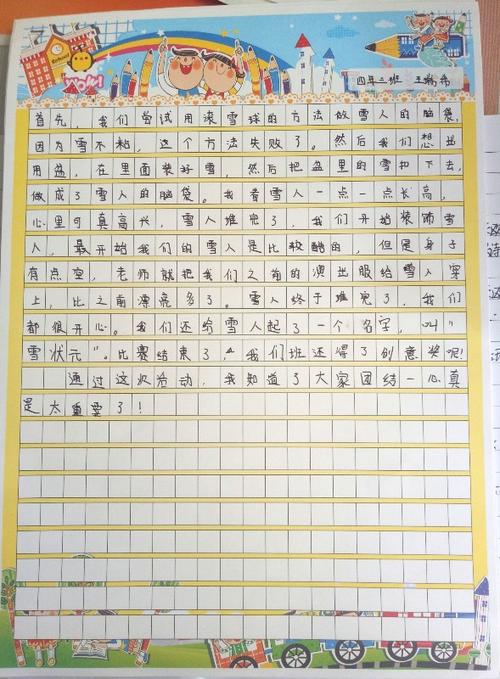 四年二班 王
首先，我们尝试用滚雪球的方法做雪人的脑袋，
因为雪不粘，这个方法失败了。然后我们想出
用盆，在里面装好雪，然后把盆里的雪扣下去，
做成了雪人的脑袋。我看雪人一点一点长高，
心里可真高兴，雪人堆完了，我们开始装饰雪
人，最开始我们的雪人是比较酷的，但是身子
有点空，老师就把我们之前的演出服给雪人穿
上，比之前漂亮多了。雪人终于堆完了，我们
都很开心。我们还给雪人起了一个名字，叫“
雪状元”。比赛结束了，我们班还得了创意奖呢！
通过这次活动，我知道了大家团结一心真
是太重要了！